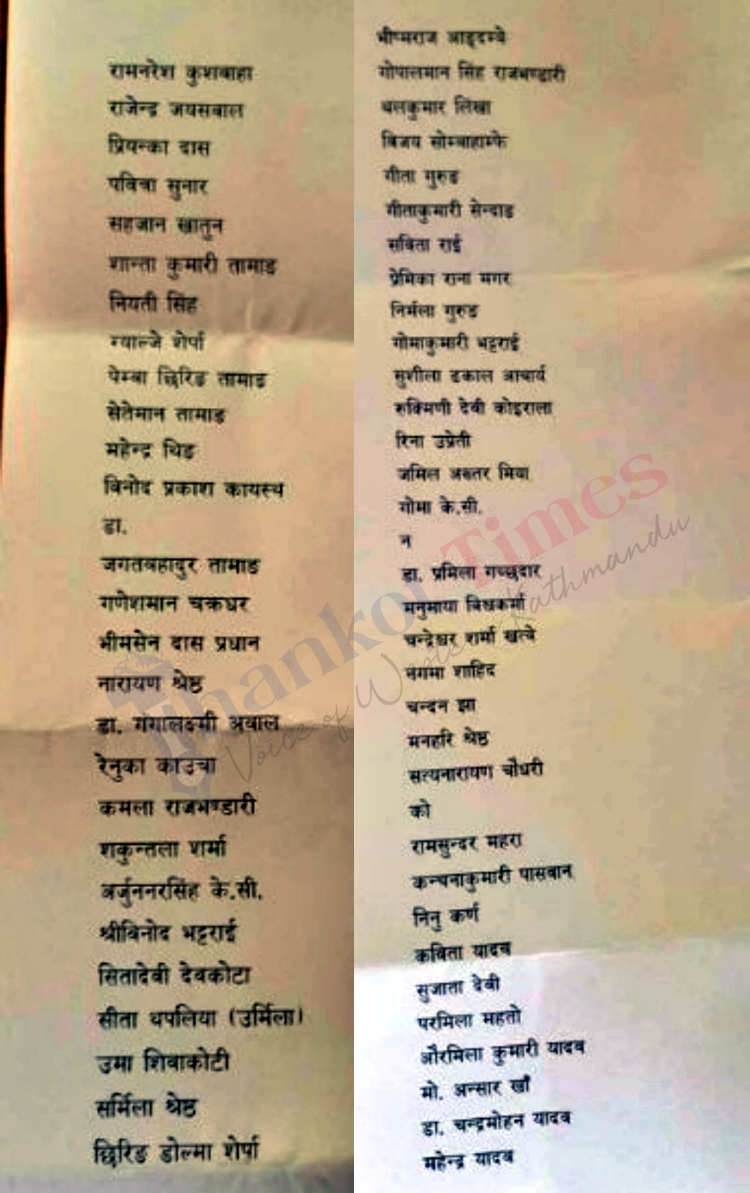 रामनरेश कुशवाहा
राजेन्द्र जयसवाल
प्रियन्का दास
पवित्रा सुनार
सहजान खातुन
शान्ता कुमारी तामाङ
नियती सिंह
ग्याल्जे शेर्पा
पेम्बा छिरिङ तामाङ
सेतेमान तामाङ
महेन्द्र थिङ
विनोद प्रकाश कायस्थ
डा.
जगतबहादुर तामाङ
गणेशमान चक्रधर
भीमसेन दास प्रधान
नारायण श्रेष्ठ
डा. गंगालक्ष्मी अवाल
रेनुका काउचा
कमला राजभण्डारी
शकुन्तला शर्मा
अर्जुननरसिंह के.सी.
श्रीविनोद भट्टराई
सितादेवी देवकोटा
सीता थपलिया (उर्मिला)
उमा शिवाकोटी
सर्मिला श्रेष्ठ
छिरिङ डोल्मा शेर्पा
भीष्मराज आङ्दम्बे
गोपालमान सिंह राजभण्डारी
थलकुमार लिखा
बिजय सोम्बाहाम्फे
गीता गुरुङ
गीताकुमारी सेन्दाङ
सबिता राई
प्रेमिका राना मगर
निर्मला गुरुङ
गोमाकुमारी भट्टराई
सुशीला ढकाल आचार्य
रुक्मिणी देवी कोइराला
रिना उप्रेती
जमिल अख्तर मिया
गोमा के.सी.
न
डा. प्रमिला गच्छदार
मनुमाया विश्वकर्मा
चन्द्रेश्वर शर्मा खत्वे
नगमा शाहिद
चन्दन झा
मनहरि श्रेष्ठ
सत्यनारायण चौधरी
को
रामसुन्दर महरा
कन्चनाकुमारी पासवान
निनु कर्ण
कविता यादव
सुजाता देवी
परमिला महतो
औरमिला कुमारी यादव
मो. अन्सार खाँ
डा. चन्द्रमोहन यादव
महेन्द्र यादव
Thankot Times
Voice of Kathmandu